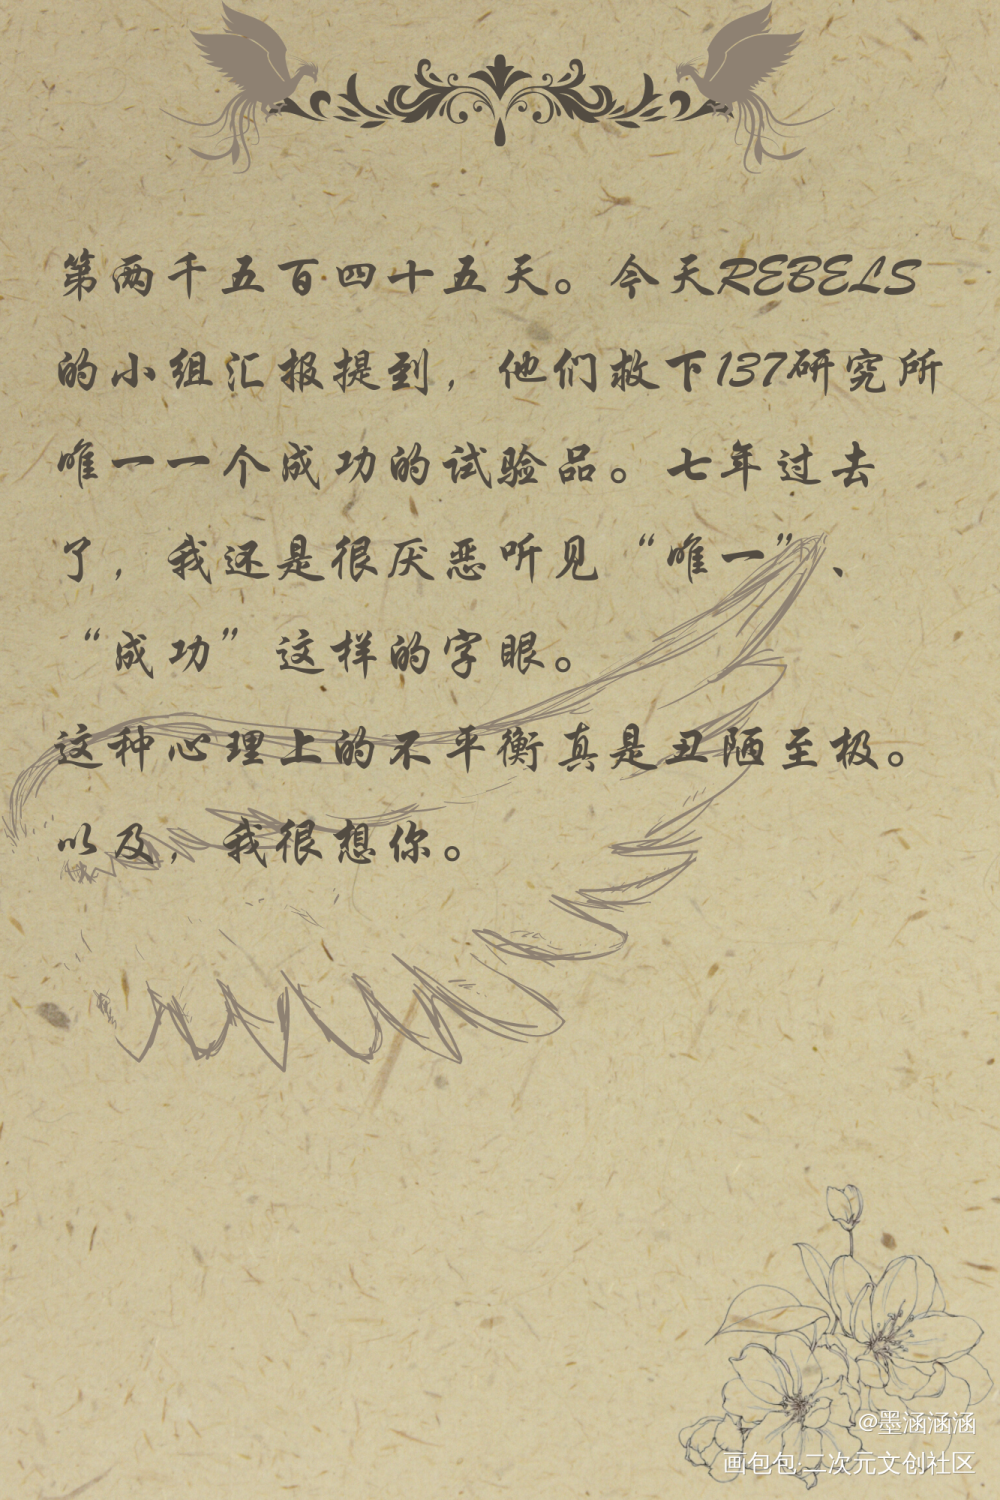 第两千五百四十五天。今天REBELS
的小组汇报提到，他们救下137研究所
唯一一个成功的试验品。七年过去
了，我还是很厌恶听见“唯一”、
“成功”这样的字眼。
这种心理上的不平衡真是丑陋至极。
以及，我很想你。
@墨涵涵涵
画包包·二次元文创社区